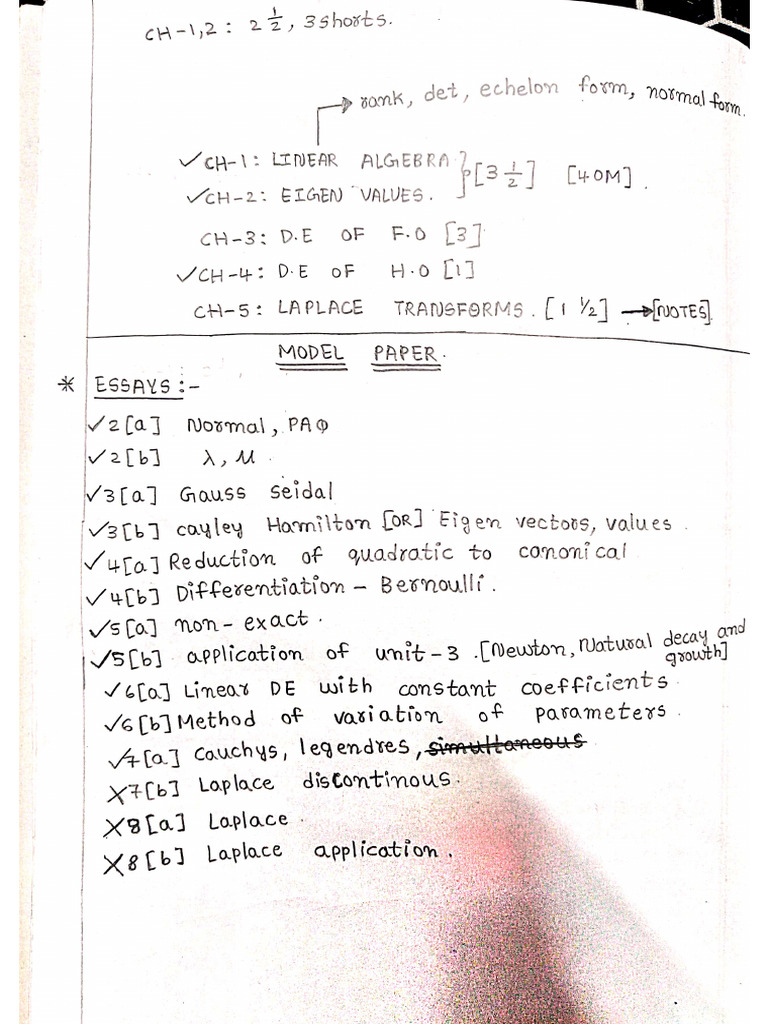 CH-1,2: 2 1/2, 3 shorts.
→ rank, det, echelon form, normal form.
✓CH-1: LINEAR ALGEBRA } [3 1/2] [40M].
✓CH-2: EIGEN VALUES.
CH-3: D.E OF F.O [3]
✓CH-4: D.E OF H.O [1]
CH-5: LAPLACE TRANSFORMS. [1 1/2] → [NOTES].
MODEL PAPER.
* ESSAYS:-
✓2[a] Normal, PAQ
✓2[b] λ, μ.
✓3[a] Gauss seidal
✓3[b] cayley Hamilton [OR] Eigen vectors, values.
✓4[a] Reduction of quadratic to canonical
✓4[b] Differentiation - Bernoulli.
✓5[a] non-exact.
✓5[b] application of unit-3. [Newton, Natural decay and growth]
✓6[a] Linear DE with constant coefficients.
✓6[b] Method of variation of parameters.
✓7[a] Cauchys, legendres, simultaneous
X7[b] Laplace discontinous.
X8[a] Laplace.
X8[b] Laplace application.